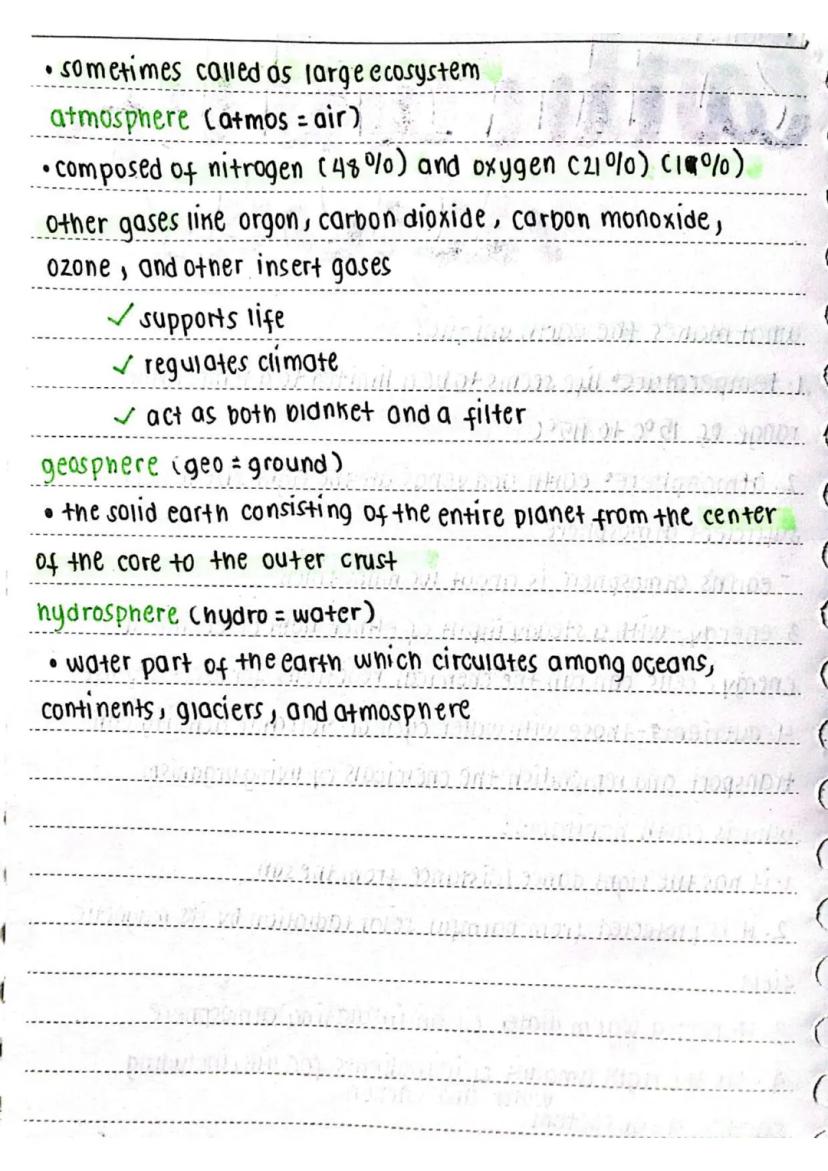 • sometimes called as large ecosystem
atmosphere (atmos = air)
• composed of nitrogen (48%) and oxygen (21%) (1%)
other gases line orgon, carbon dioxide, carbon monoxide,
ozone, and other insert gases
✓ supports life
✓ regulates climate
✓ act as both blanket and a filter
geosphere (geo = ground)
• the solid earth consisting of the entire planet from the center
of the core to the outer crust
hydrosphere (hydro = water)
• water part of the earth which circulates among oceans,
continents, glaciers, and atmosphere